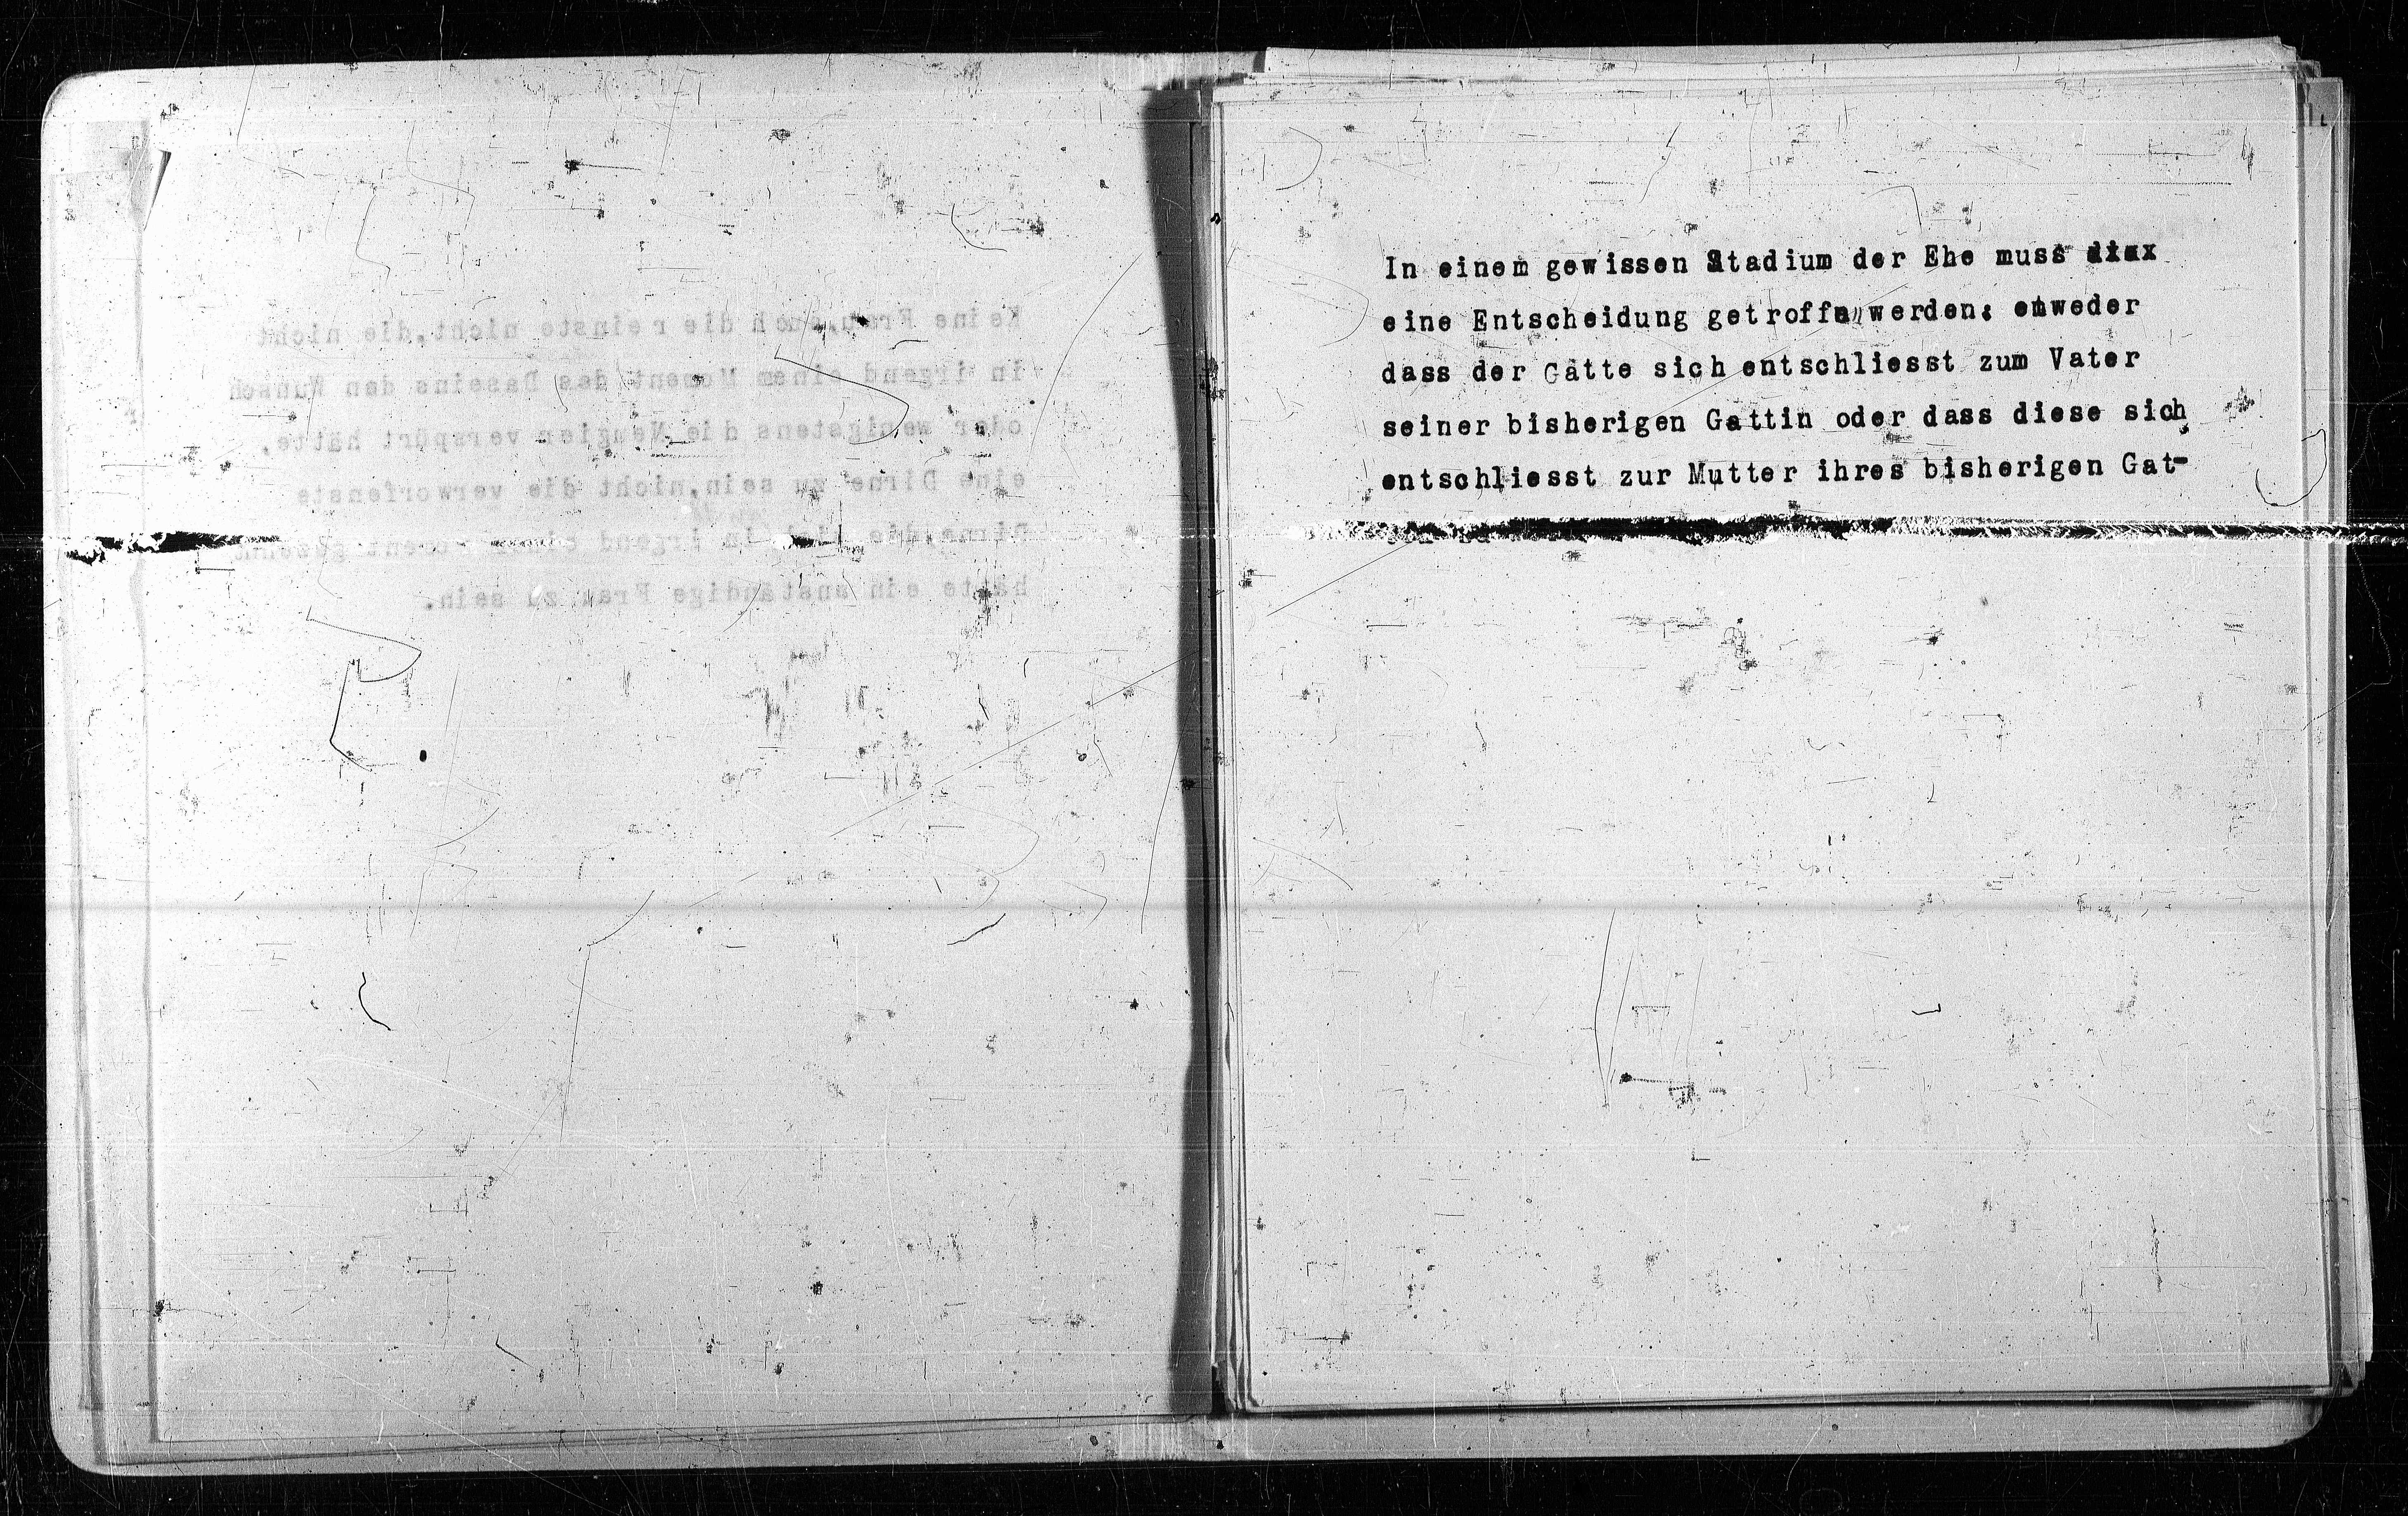 Keine Frau, auch die reinste nicht, die nicht
in irgend einem Moment des Daseins den Wunsch
oder wenigstens die Neugier verspürt hätte,
eine Dirne zu sein, nicht die verworfenste
Dirne, die nicht in irgend
hätte ein anständige Frau zu sein.
4
In einem gewissen Stadium der Ehe muss
eine Entscheidung getroffen werden: entweder
dass der Gatte sich entschliesst zum Vater
seiner bisherigen Gattin oder dass diese sich
entschliesst zur Mutter ihres bisherigen Gat-